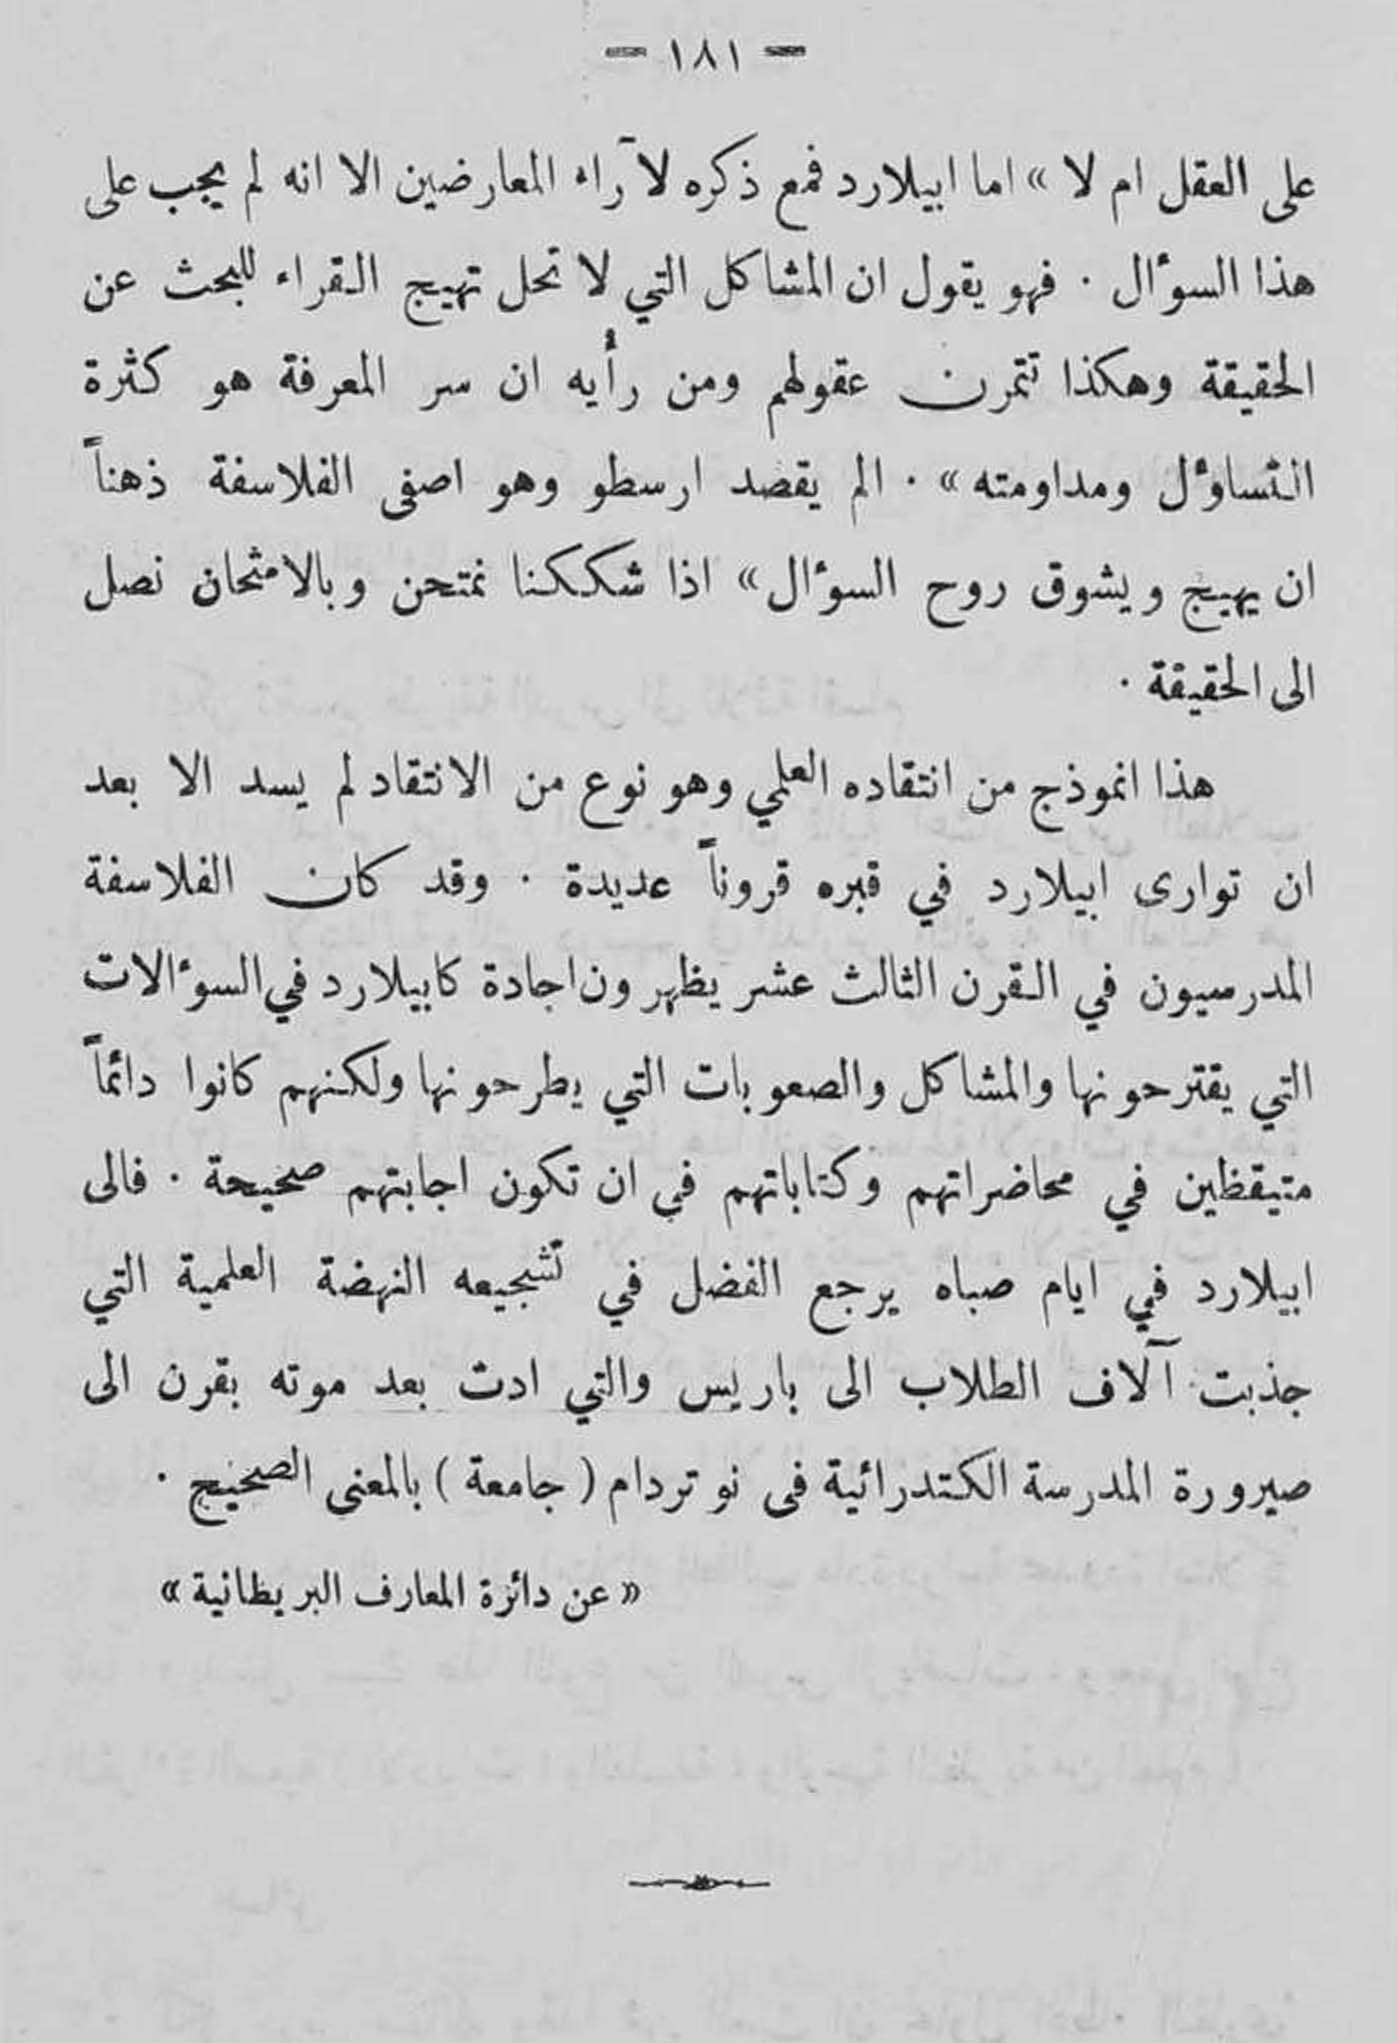 — ١٨١ —
على العقل ام لا » اما ابيلارد فمع ذكره لآراء المعارضين الا انه لم يجب على
هذا السوءال . فهو يقول ان المشاكل التي لا تحل تهيج القراء للبحث عن
الحقيقة وهكذا تتمرن عقولهم ومن رأيه ان سر المعرفة هو كثرة
التساوءل ومداومته » . الم يقصد ارسطو وهو اصفى الفلاسفة ذهناً
ان يهيج ويشوق روح السوءال » اذا شككنا نمتحن وبالامتحان نصل
الى الحقيقة .
هذا انموذج من انتقاده العلمي وهو نوع من الانتقاد لم يسد الا بعد
ان توارى ابيلارد في قبره قروناً عديدة . وقد كان الفلاسفة
المدرسيون في القرن الثالث عشر يظهرون اجادة كابيلارد في السوءالات
التي يقترحونها والمشاكل والصعوبات التي يطرحونها ولكنهم كانوا دائماً
متيقظين في محاضراتهم وكتاباتهم في ان تكون اجابتهم صحيحة . فالى
ابيلارد في ايام صباه يرجع الفضل في تشجيعه النهضة العلمية التي
جذبت آلاف الطلاب الى باريس والتي ادت بعد موته بقرن الى
صيرورة المدرسة الكتدرائية فى نوتردام ( جامعة ) بالمعنى الصحيح .
« عن دائرة المعارف البريطانية »